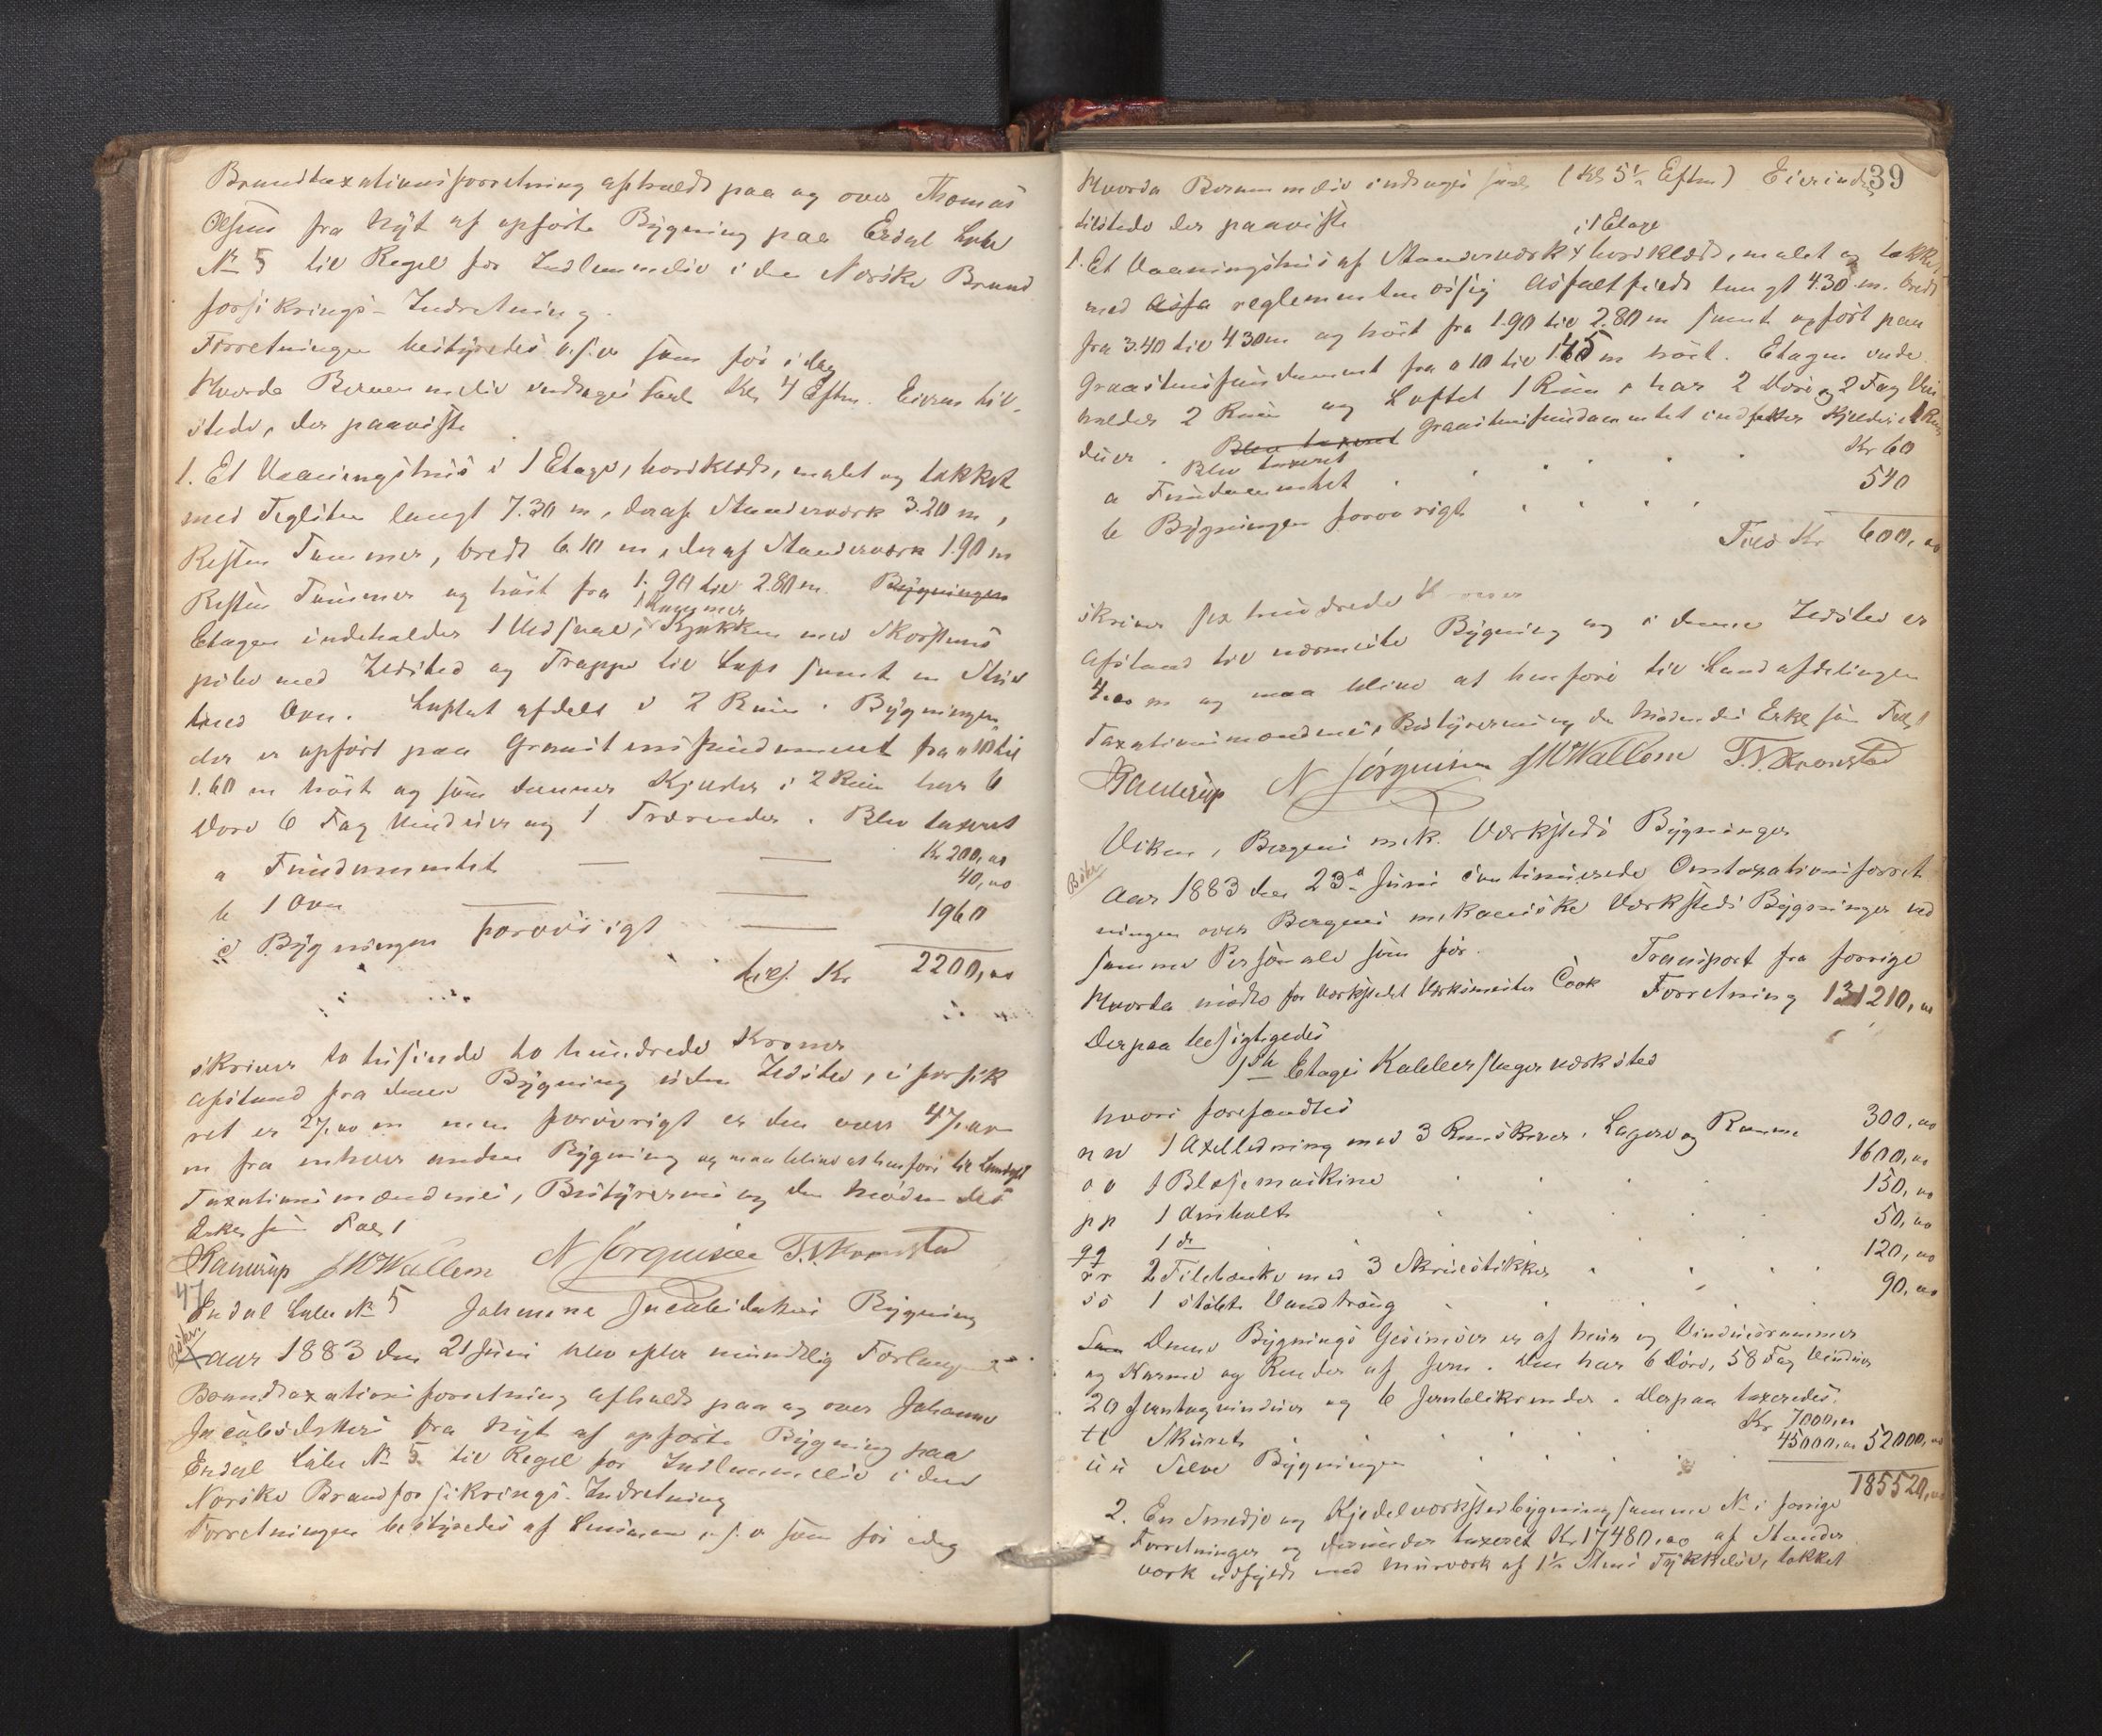 Brandtaxationsforretning afholdt paa og over Thomas
Olsens fra Nyt af opførte Bygning paa Erdal Lybe
No 5 til Regel for Indlemmelse i den Norske Brand
forsikrings-Indretning.
Forretningen bestyredes o.s.v som før idag
Hvorda Bemmeldte Kl 4 Eftm. Eieren til-
stede, der paaviste
1. Et Vaaningshus i 1 Etage, bordklædt, malet og takket
med Teglsten langt 7.30 m, deraf Standerværk 3.20 m,
Resten Tømmer, bredt 6.10 m, deraf Standerværk 1.90 m
Resten Tømmer og høit fra 1.90 til 2.80 m. Bygningen
1 Kammer
Etagen indeholder 1 Kjøkken med Skorstens
pibe med Ildsted og Trappe til Loft samt en Stue
med Ovn. Loftet afdelt i 2 Rum. Bygningen,
der er opført paa Graastensfundament fra 0 10 til
1.60 m høit og som danner Kjelder i 2 Rum har 6
Døre 6 Fag Vinduer og 1 Trærender. Blev taxeret
a Fundamentet — — Kr 200,00
b 1 Ovn — 40,00
c Bygningen forøvrigt — 1960
tils. Kr 2200,00
skriver to tusinde to hundrede Kroner
Afstand fra denne Bygning uden Ildsted, i
ret er 27,00 m men forøvrigt er den over 47,00
m fra enhver anden Bygning og maa blive at henføre til Landafd
Taxationsmændenes, Bestyrerens og den mødendes
Erkl som Fals
Raurup JWWallem N Jørgensen T.N.Kronstad
47
Erdal Lybe No 5 Johanne Jacobsdatters Bygning
Aar 1883 den 21 Juni blev efter mundtlig Forlangende
Brandtaxationsforretning afholdt paa og over Johanne
Jacobsdatters fra Nyt af opførte Bygning paa
Erdal Lybe No 5 til Regel for Indlemmelse i den
Norske Brandforsikrings-Indretning
Forretningen bestyredes af Lensmanden o.s.v som før idag
39
Hvorda (Kl 5½ Eftm) Eierinden
tilstede der paaviste
i 1 Etage
1. Et Vaaningshus af Standerværk bordklædt, malet og takket
med Asfa reglementmæssig Asfaltfilt langt 4.30 m. bredt
fra 3.40 til 4.30 m og høit fra 1.90 til 2.80 m samt opført paa
Graastensfundament fra 0 10 til 1.45 m høit. Etagen inde
holder 2 Rum og Loftet 1 Rum, har 2 Døre og 2 Fag Vin
duer. Blev taxeret Graastensfundamentet indfatter Kjelder i 1 Rum
Blev taxeret
a Fundamentet . . . . Kr 60
b Bygningen forøvrigt . . . . 540
Tils Kr 600,00
skriver sex hundrede Kroner
Afstand til nærmeste Bygning og i denne Ildsted er
4.00 m og maa blive at henføre til Landafdelingen
Taxationsmændenes, Bestyrerens og de mødendes Erkl som Fals
Raurup N Jørgensen JWWallem T.N.Kronstad
Viken, Bergens mek. Værksteds Bygninger
Aar 1883 den 23d Juni continuerede Omtaxationsforret
ningen over Bergens mekaniske Værksteds Bygninger ved
samme Personale som før.
Transport fra forrige
Hvorda mødte for Værkstedet Værkmester Cook Forretning 131210,00
Derpaa besigtigedes
1ste Etages Kobberslagerværksted
hvori forefandtes
nn 1 Axelledning med 3 Remskiver, Lagere og Ramme 300,00
oo 1 Blæsemaskine . . . . 1600,00
pp 1 Ambolt . . . . 150,00
qq 1 do . . . . 50,00
rr 2 Filebænke med 3 Skruestikker . . . . 120,00
ss 1 støbt Vandtraug . . . . 90,00
Denne Bygnings Gesimser er af Mur og Vinduesrammer
og Karme og Render af Jern. Den har 6 Døre, 58 Fag Vinduer
20 Jerntagvinduer og 6 Jernblikrender. Derpaa taxeredes:
tt Skuret . . . . Kr 7000,00
uu Selve Bygningen . . . . 45000,00 52000,00
185520,00
2. En Smedje og Kjedelværkstedbygning samme No i forrige
Forretninger og derunder taxeret Kr 17480,00 af Stander
værk udfyldt med Murværk af 1½ Stens Tykkelse, takket